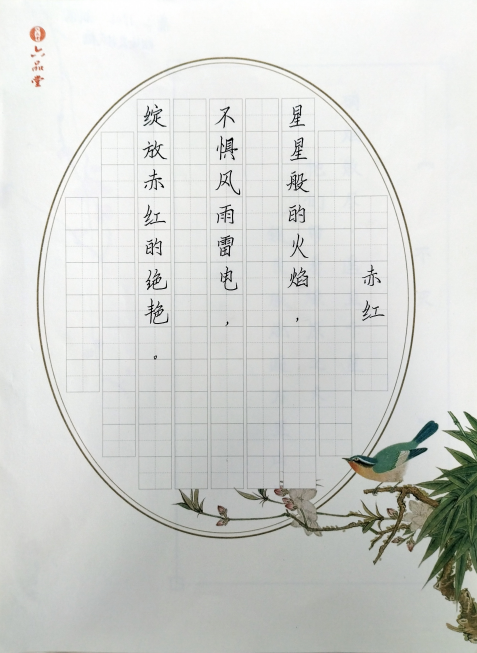 六品堂
赤红
星星般的火焰，
不惧风雨雷电，
绽放赤红的绝艳。